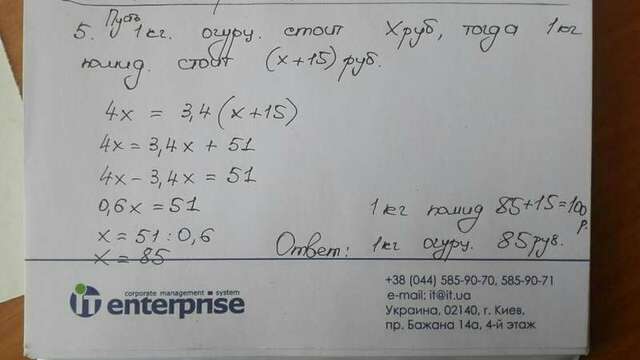 5. Пусть 1 кг. огурц. стоит X руб, тогда 1 кг
помид. стоит (x+15) руб.
4x = 3,4(x+15)
4x = 3,4x + 51
4x - 3,4x = 51
0,6x = 51
x = 51 : 0,6
x = 85
1 кг помид 85+15=100 р.
Ответ: 1 кг огурц. 85 руб.
corporate management system
it enterprise
+38 (044) 585-90-70, 585-90-71
e-mail: it@it.ua
Украина, 02140, г. Киев,
пр. Бажана 14а, 4-й этаж